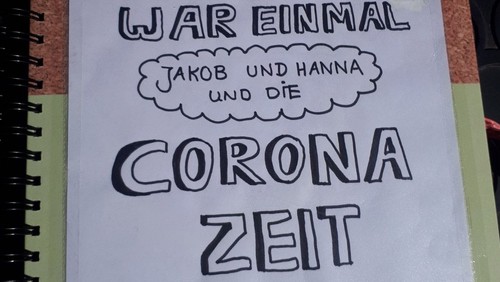 WAR EINMAL
JAKOB UND HANNA
UND DIE
CORONA
ZEIT